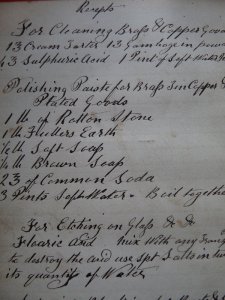 Recepts
For Cleaning Brass & Copper Goods
1 3 Cream Tarter 1 3 Gamboge in powd
4 3 Sulphuric Acid 1 Pint of Soft Water
Polishing Paiste for Brass Tin Copper &
Plated Goods
1 lb of Rotton Stone
1 lb Fullers Earth
1/2 lb Soft Soap
1/4 lb Brown Soap
2 3 of Common Soda
3 Pints Soft Water. Boil together
For Etching on Glass & &
Flouric Acid mix With any
to destroy the Acid use Spt Salts in tw
its quantity of Water